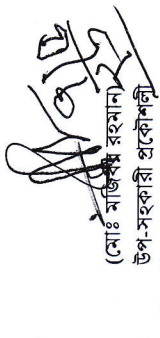 (মোঃ মজিবর রহমান)
উপ-সহকারী প্রকৌশলী